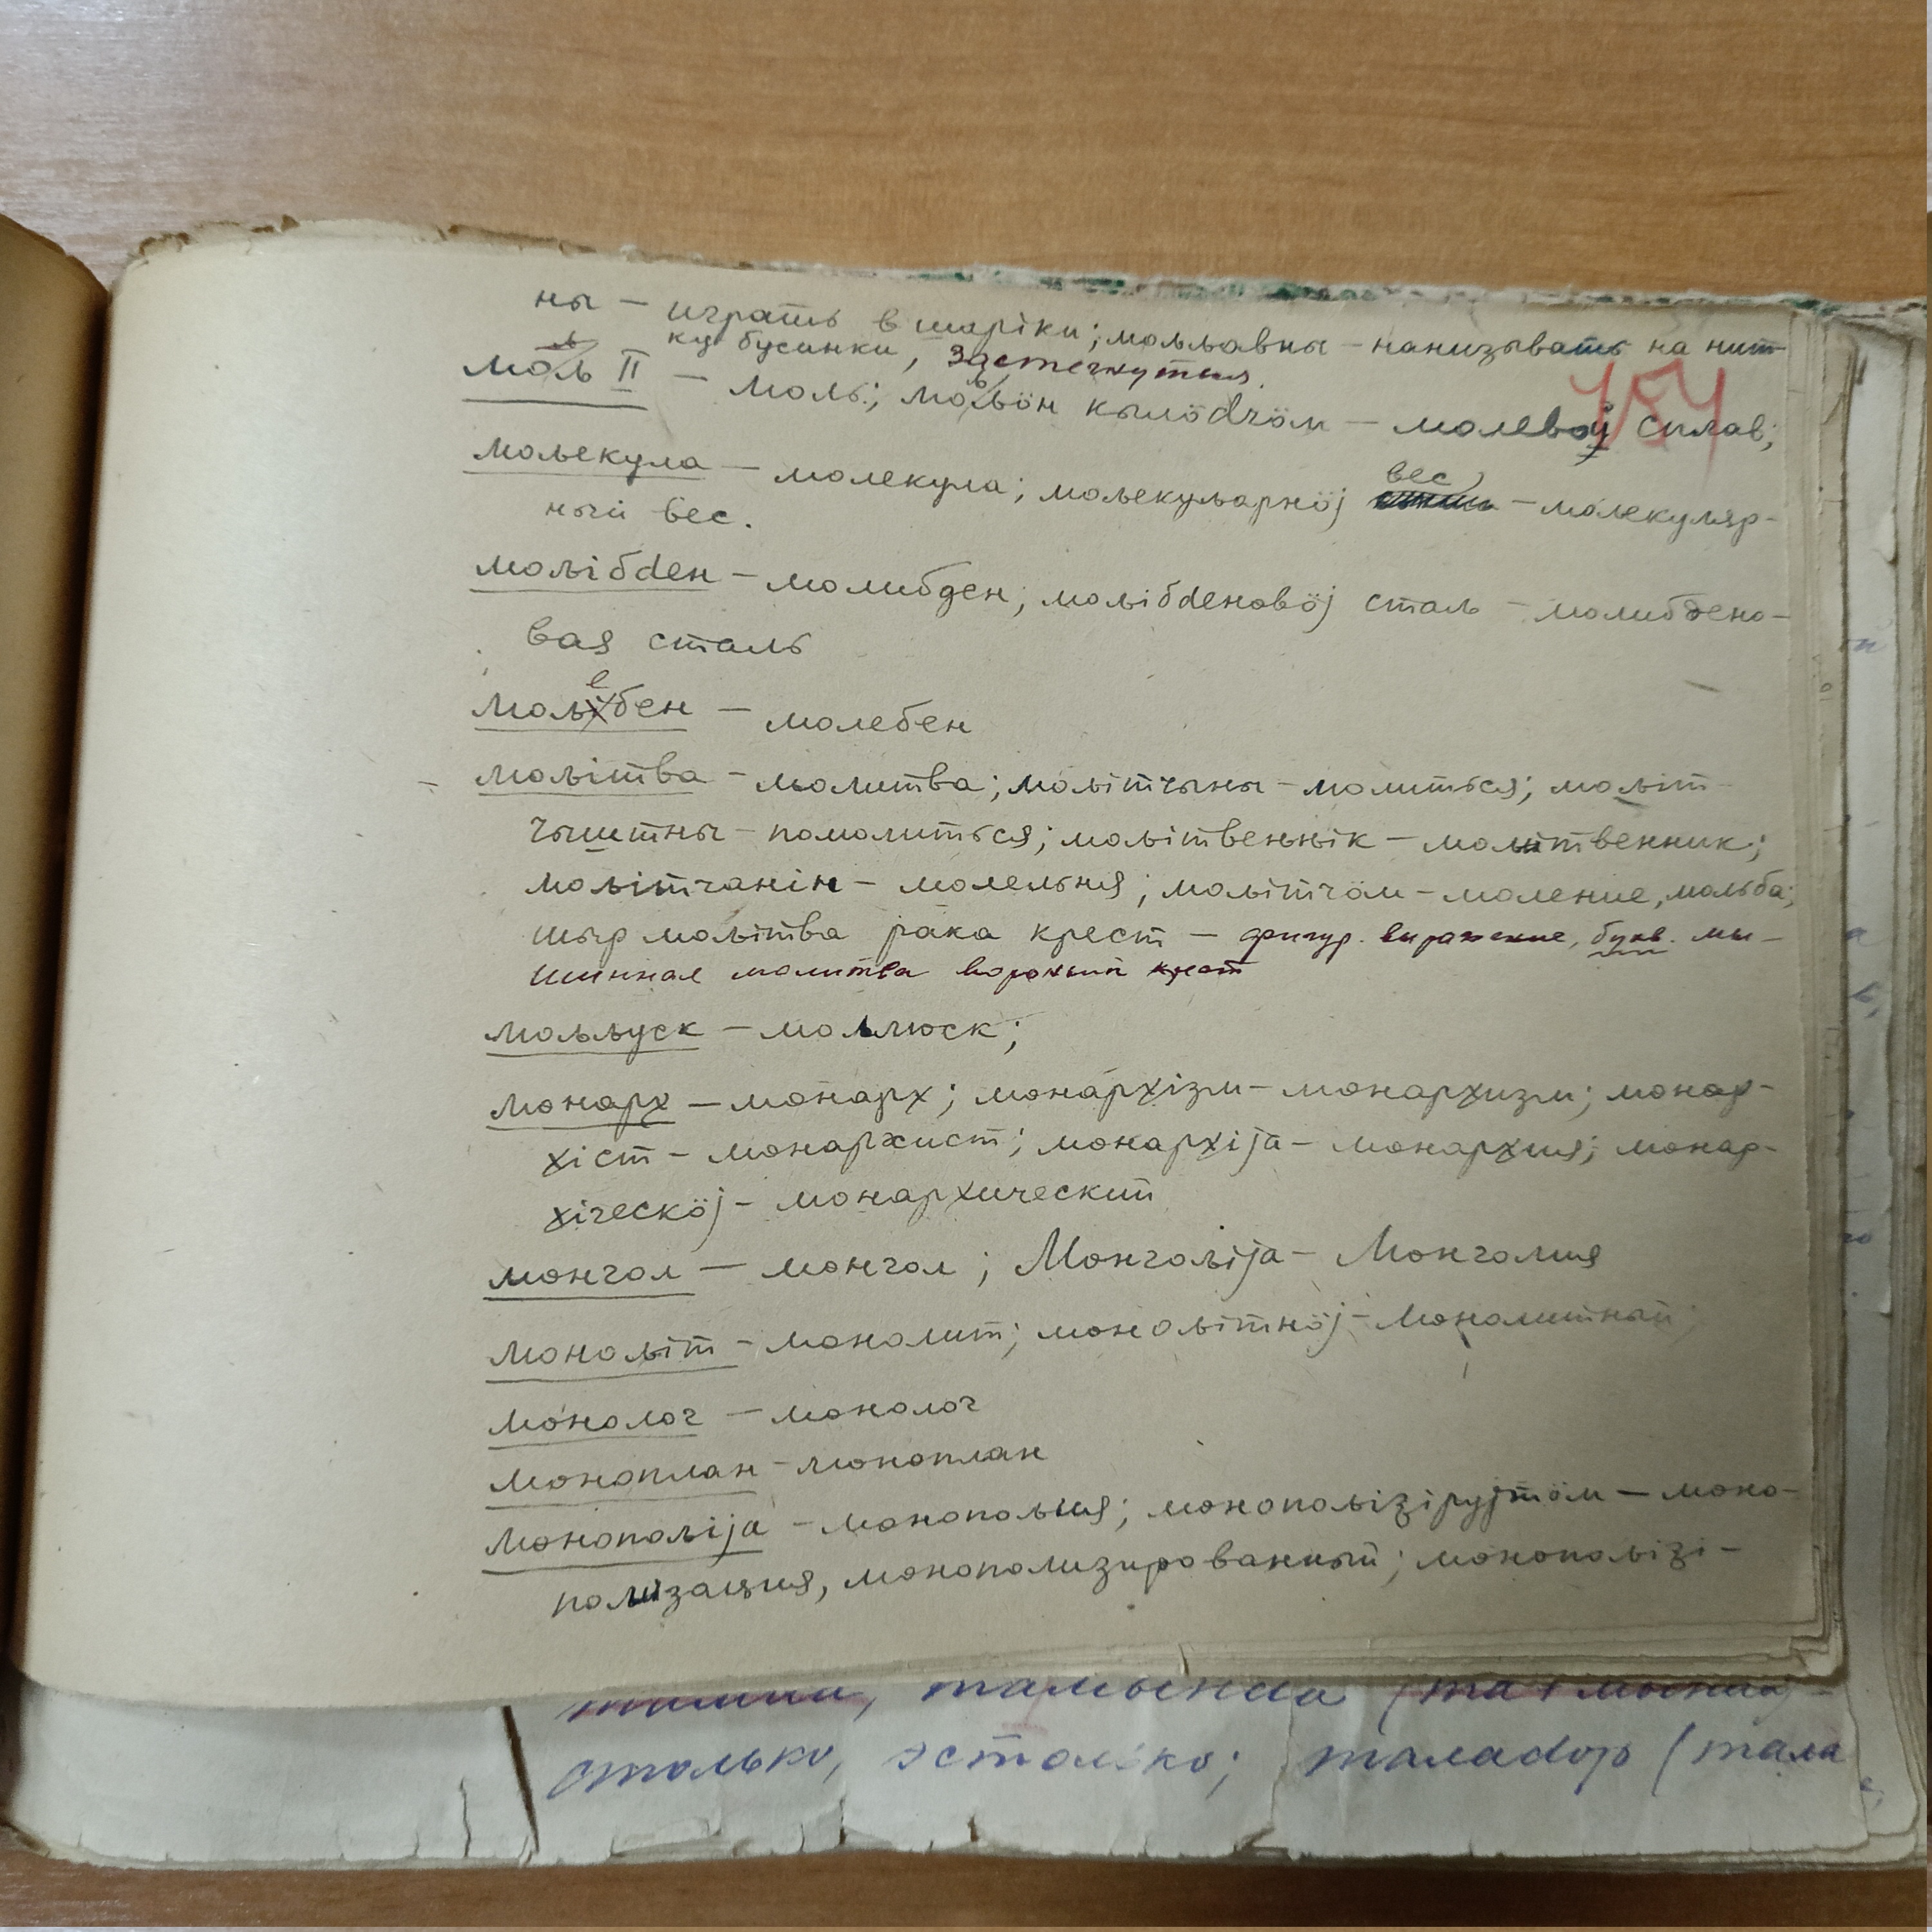 ны – играть в шарiки; мољљавны – нанизывать на нит-
ку бусинки, застегнуться.
154
моль II – моль; мољöн кылöдчöм – молевой сплав;
мољекула – молекула; мољекуљарнöј вес – молекуляр-
ный вес.
мољiбdен – молибден; мољiбdеновöј сталь – молибдено-
вая сталь
мољебен – молебен
– мољiтва – молитва; мољiтчыны – молиться; мољiт-
чыштны – помолиться; мољiтвенњiк – молитвенник;
мољiтчанiн – молельня; мољiтчöм – моление, мольба;
шыр мољiтва рака крест – фигур. выражение, букв. мы-
шинная молитва вороний крест
мољљуск – моллюск;
монарх – монарх; монархiзм – монархизм; монар-
хiст – монархист; монархiја – монархия; монар-
хiческöј – монархический
монгол – монгол; Монгољiја – Монголия
монољiт – монолит; монољiтнöј – монолитный;
монолог – монолог
моноплан – моноплан
монопољiја – монополия; монопољiзiруjтöм – моно-
полизация, монополизированный; монопољiзi-
тамында
столько, эстолько; таладор (тала